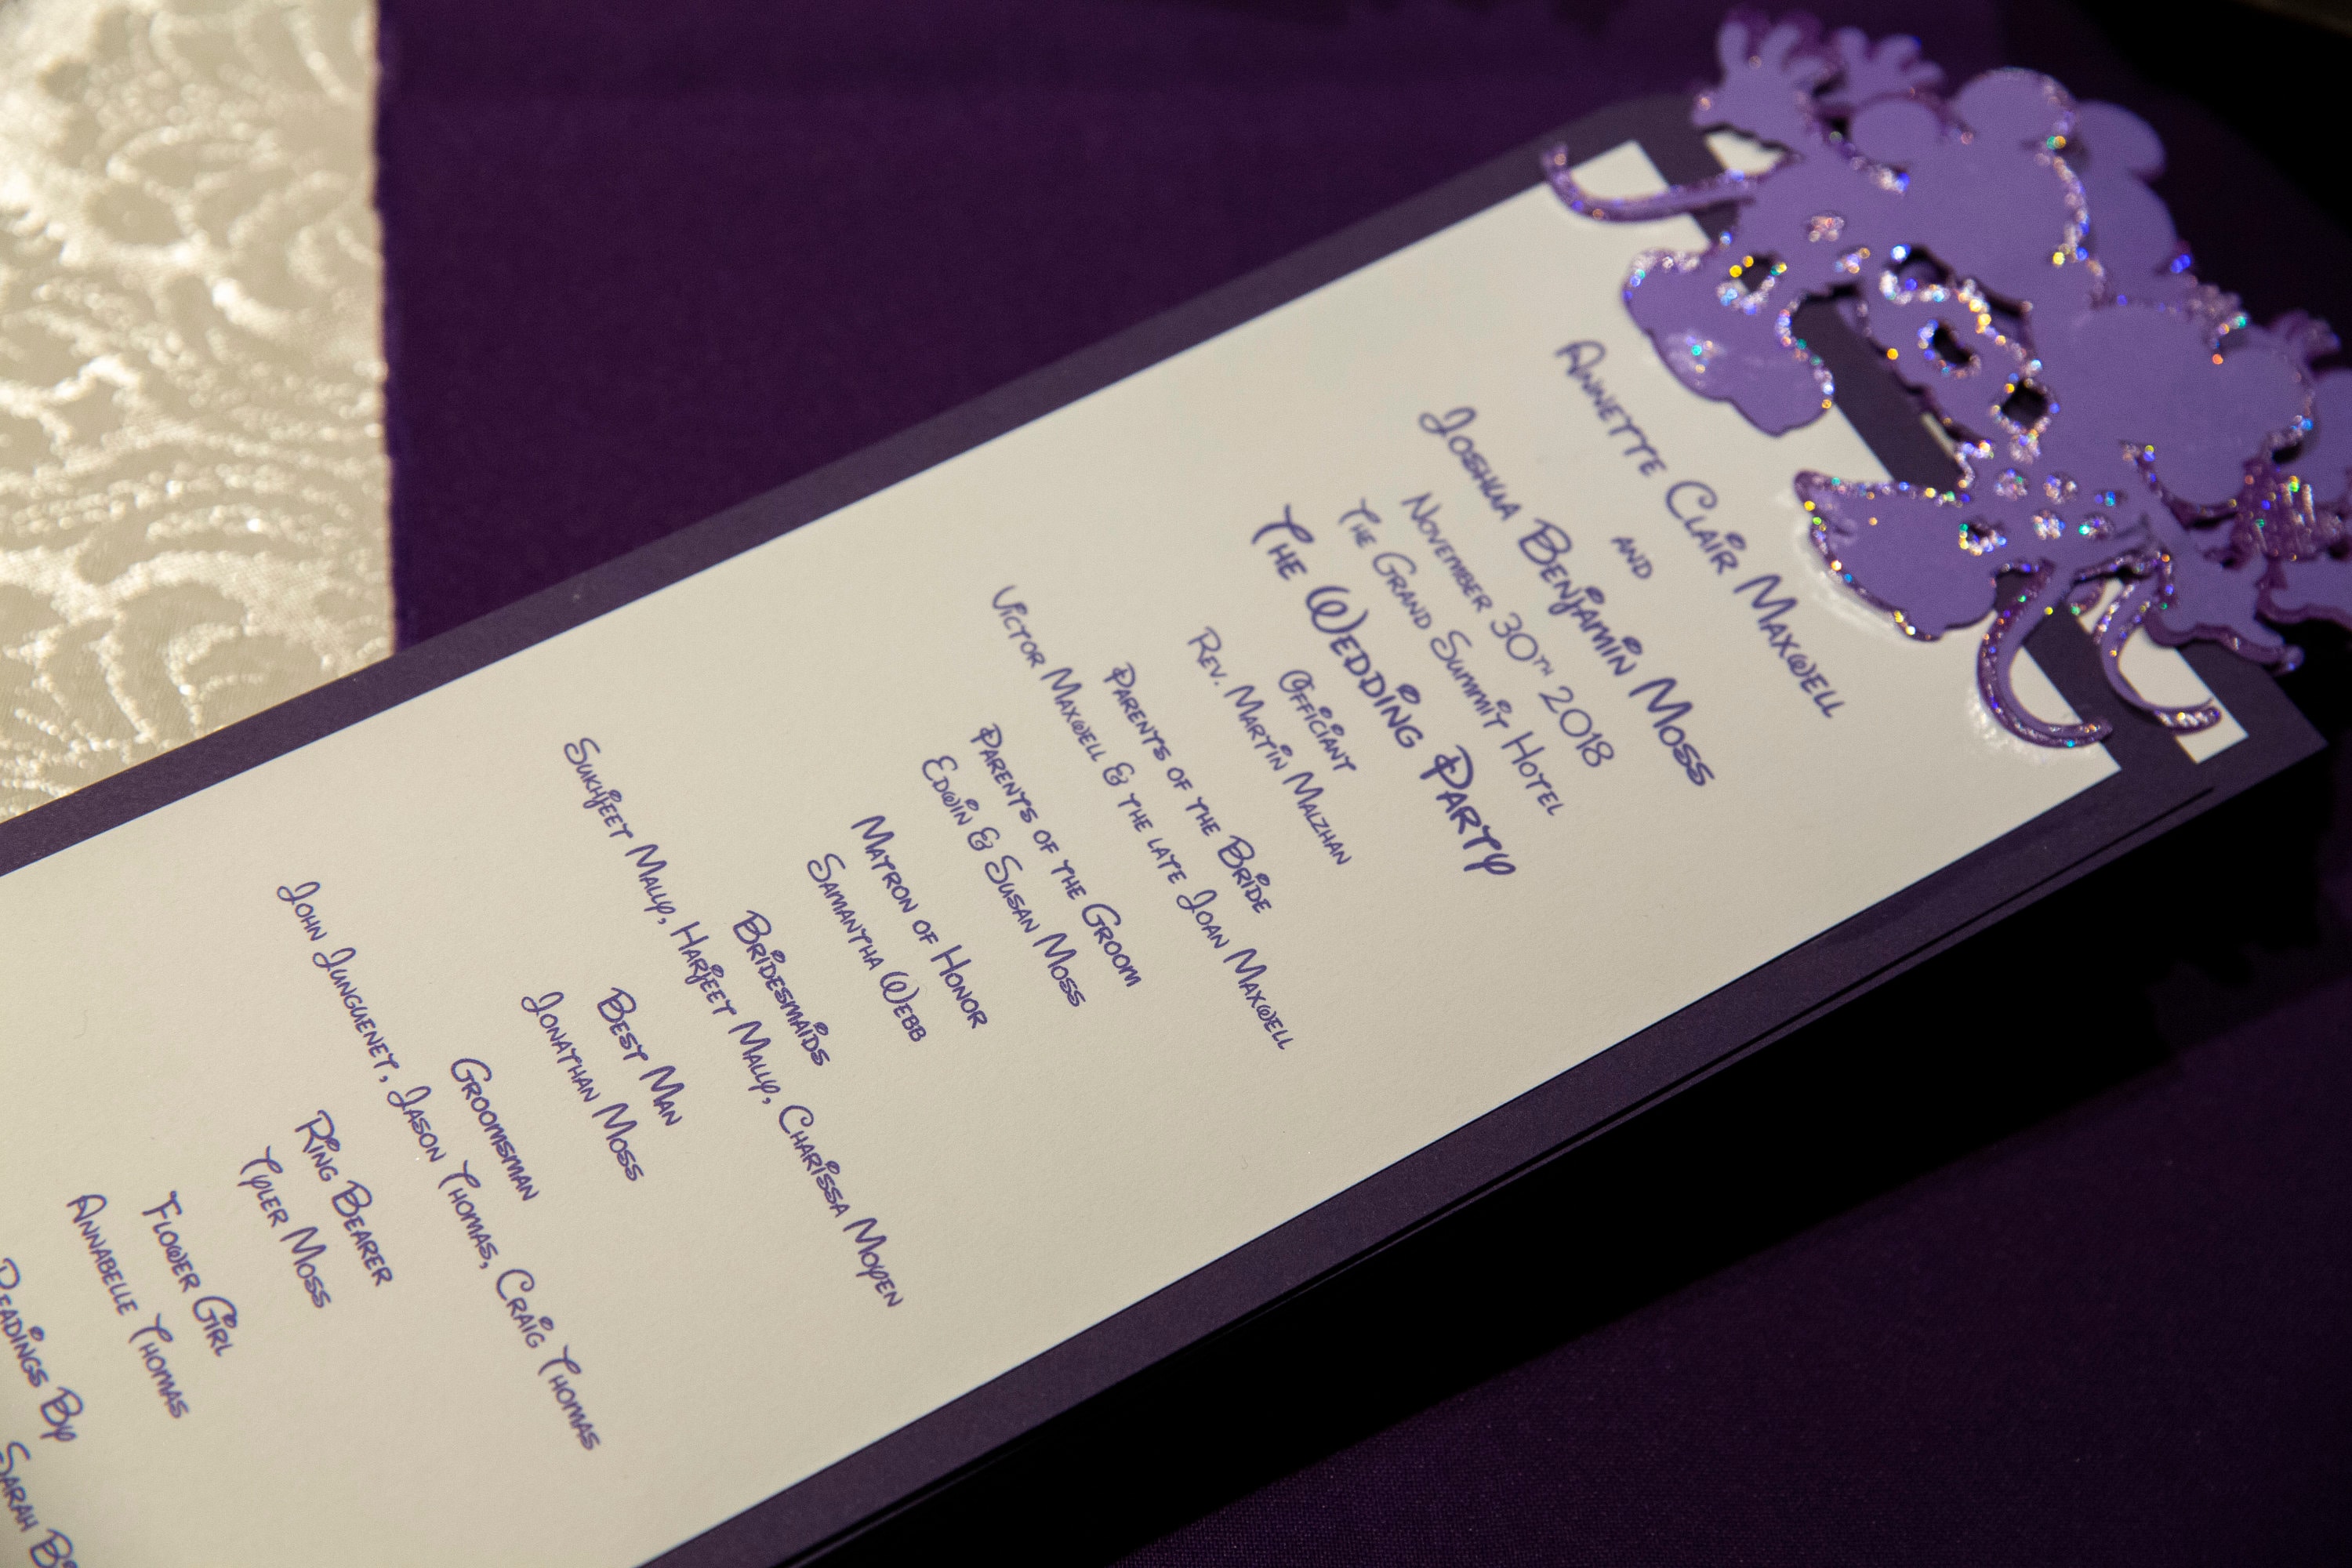 Annette Clair Maxwell
and
Joshua Benjamin Moss
November 30th 2018
The Grand Summit Hotel
The Wedding Party
Officiant
Rev. Martin Malzhan
Parents of the Bride
Victor Maxwell & the late Joan Maxwell
Parents of the Groom
Edwin & Susan Moss
Matron of Honor
Samantha Webb
Bridesmaids
Sukhjeet Mally, Harjeet Mally, Charissa Moyen
Best Man
Jonathan Moss
Groomsman
John Junguenet, Jason Thomas, Craig Thomas
Ring Bearer
Tyler Moss
Flower Girl
Annabelle Thomas
Readings By
Sarah